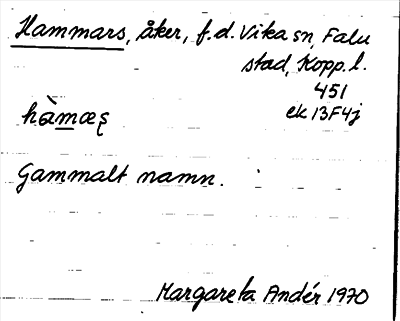 Hammars, åker, f.d. Vika sn, Falu
stad, Kopp. l.
451
ek 13F4j
hàmæʂ
Gammalt namn.
Margareta Andér 1970